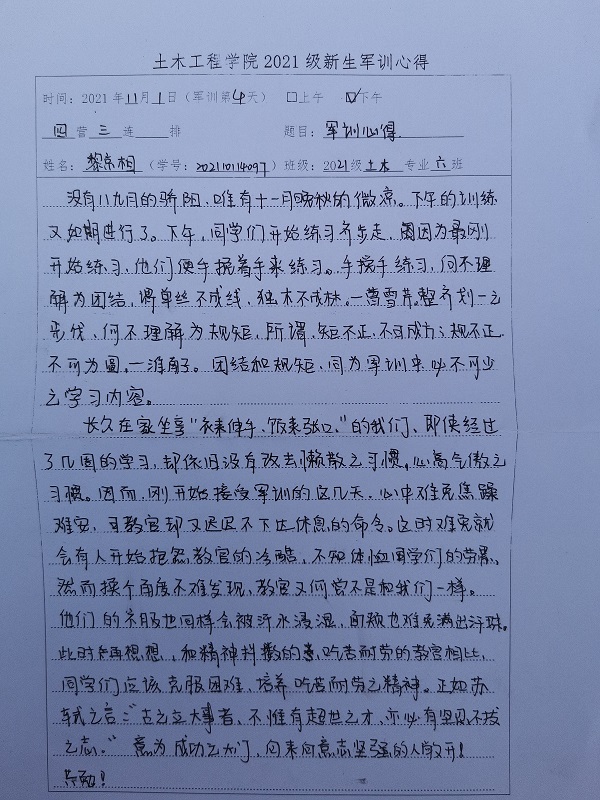 土木工程学院2021级新生军训心得
时间：2021年11月1日（军训第4天） □上午 ☑下午
四营三连 排 题目：军训心得
姓名：黎宗相（学号：20210114097）班级：2021级土木专业六班
没有八九月的骄阳，唯有十一月晚秋的微凉。下午的训练
又如期进行了。下午，同学们开始练习齐步走，因为最刚
开始练习，他们便手挽着手来练习。手挽手练习，何不理
解为团结，谓单丝不成线，独木不成林。一曹雪芹。整齐划一之
步伐，何不理解为规矩，所谓，矩不正，不可成方；规不正
不可为圆。一淮南子。团结和规矩，同为军训中必不可少
之学习内容。
长久在家坐享“衣来伸手、饭来张口”的我们、即使经过
了几周的学习，却依旧没有改去懒散之习惯，心高气傲之
习惯。因而，刚开始接受军训的这几天，心中难免焦躁
难安，可教官却又迟迟不下达休息的命令。这时难免就
会有人开始抱怨教官的冷酷，不知体恤同学们的劳累，
然而换个角度不难发现，教官又何尝不是和我们一样。
他们的衣服也同样会被汗水浸湿，面颊也难免满出汗珠。
此时再想想，和精神抖擞的、吃苦耐劳的教官相比，
同学们应该克服困难、培养吃苦耐劳之精神。正如苏
轼之言：“古之立大事者，不惟有超世之才，亦必有坚忍不拔
之志。”意为成功之大门，向来向意志坚强的人敞开！
共勉！